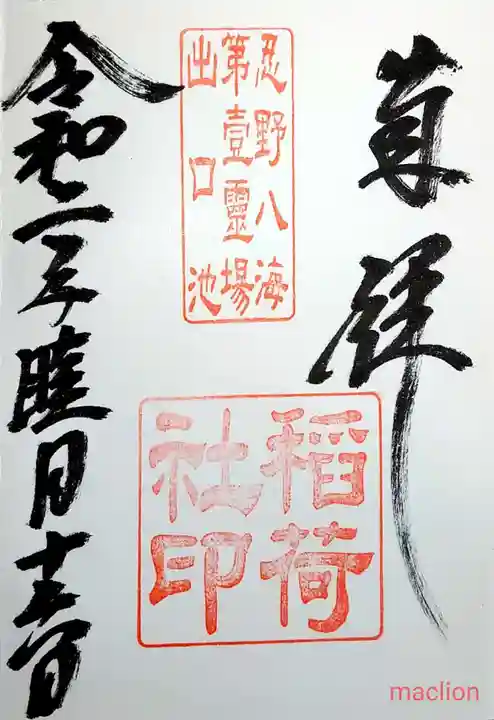 奉拝
忍野八海
第壹靈場
出口池
稲荷
社印
令和二年睦月十五日
maclion